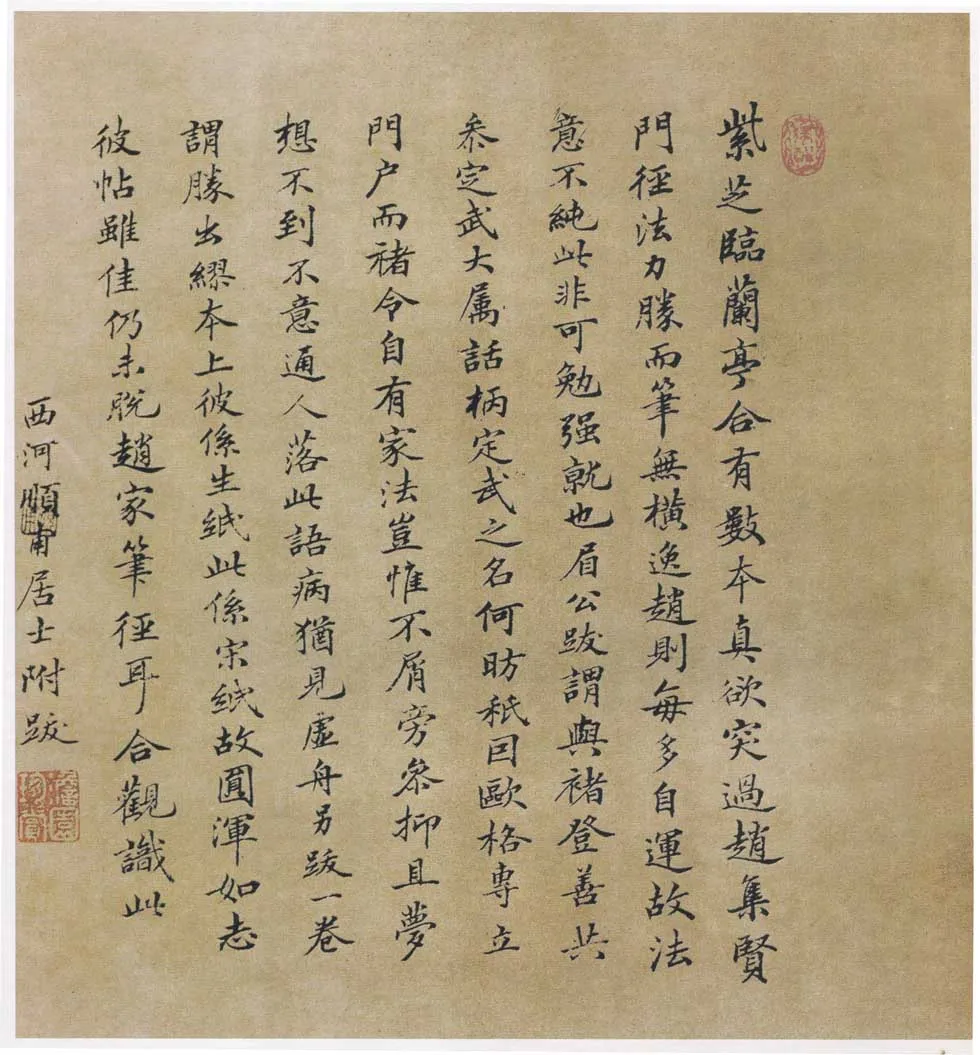 紫芝臨蘭亭合有數本真欲突過趙集賢
門徑法力勝而筆無橫逸趙則每多自運故法
意不純此非可勉强就也眉公跋謂與褚登善共
叅定武大属話柄定武之名何昉秖因歐格專立
門户而褚令自有家法豈惟不屑旁叅抑且夢
想不到不意通人落此語病猶見虛舟另跋一卷
謂勝出繆本上彼係生紙此係宋紙故圓渾如志
彼帖雖佳仍未脫趙家筆徑耳合觀識此
西河順甫居士附跋